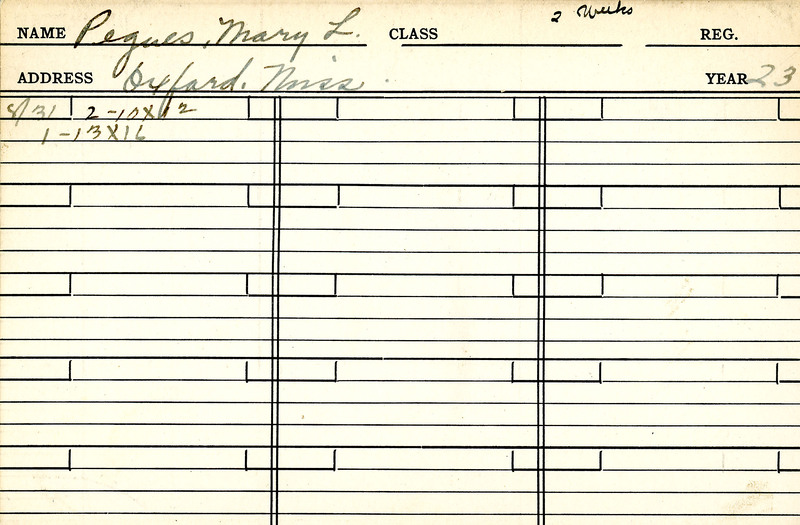 2 Weeks
NAME Pegues, Mary L. CLASS REG.
ADDRESS Oxford. Miss. YEAR 23
8/31 2-10X12
1-13X16